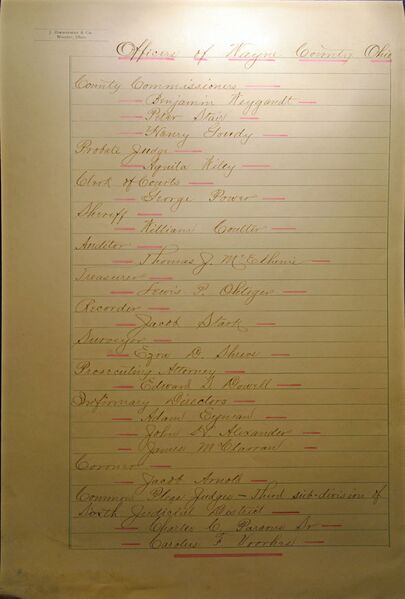 J. Zimmerman & Co.
Wooster, Ohio.
Officers of Wayne County Ohio
County Commissioners
Benjamin Weygandt
Peter Stair
Henry Goudy
Probate Judge
Aquila Wiley
Clerk of Courts
George Power
Sheriff
William Coulter
Auditor
Thomas J. McElhenie
Treasurer
Lewis P. Ohliger
Recorder
Jacob Stark
Surveyor
Ezra D. Shreve
Prosecuting Attorney
Edward S. Dowell
Infirmary Directors
Adam Eyman
John D. Alexander
James McClarran
Coroner
Jacob Arnold
Common Pleas Judges - Third sub-division of
Sixth Judicial District
Charles C. Parsons Sr
Carolus F. Voorhes